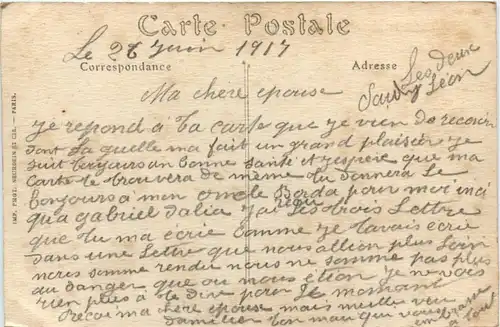 Carte Postale
Le 28 Juin 1917
Correspondance
Adresse
Les deux
Léon
Ma chere epouse
je repond a ta carte que je vien de recevoir
dont la quelle ma fait un grand plaisir je
suit toujours en bonne santé et j'espère que ma
carte te trouvera de meme tu donnera le
bonjours a mon oncle Borda pour moi inci
qu'a gabriel dalia j'ai reçu les trois Lettre
que tu ma ecrie comme je tavais ecrie
dans une Lettre que nous allion plus Loin
nores somme rendu nous ne somme pas plus
au danger que ou nous etion je ne vois
rien plus a te dire pour le momant
Recoi ma chere epouse mais meille
ton mari qui vous
IMP. PHOT. PARIS.